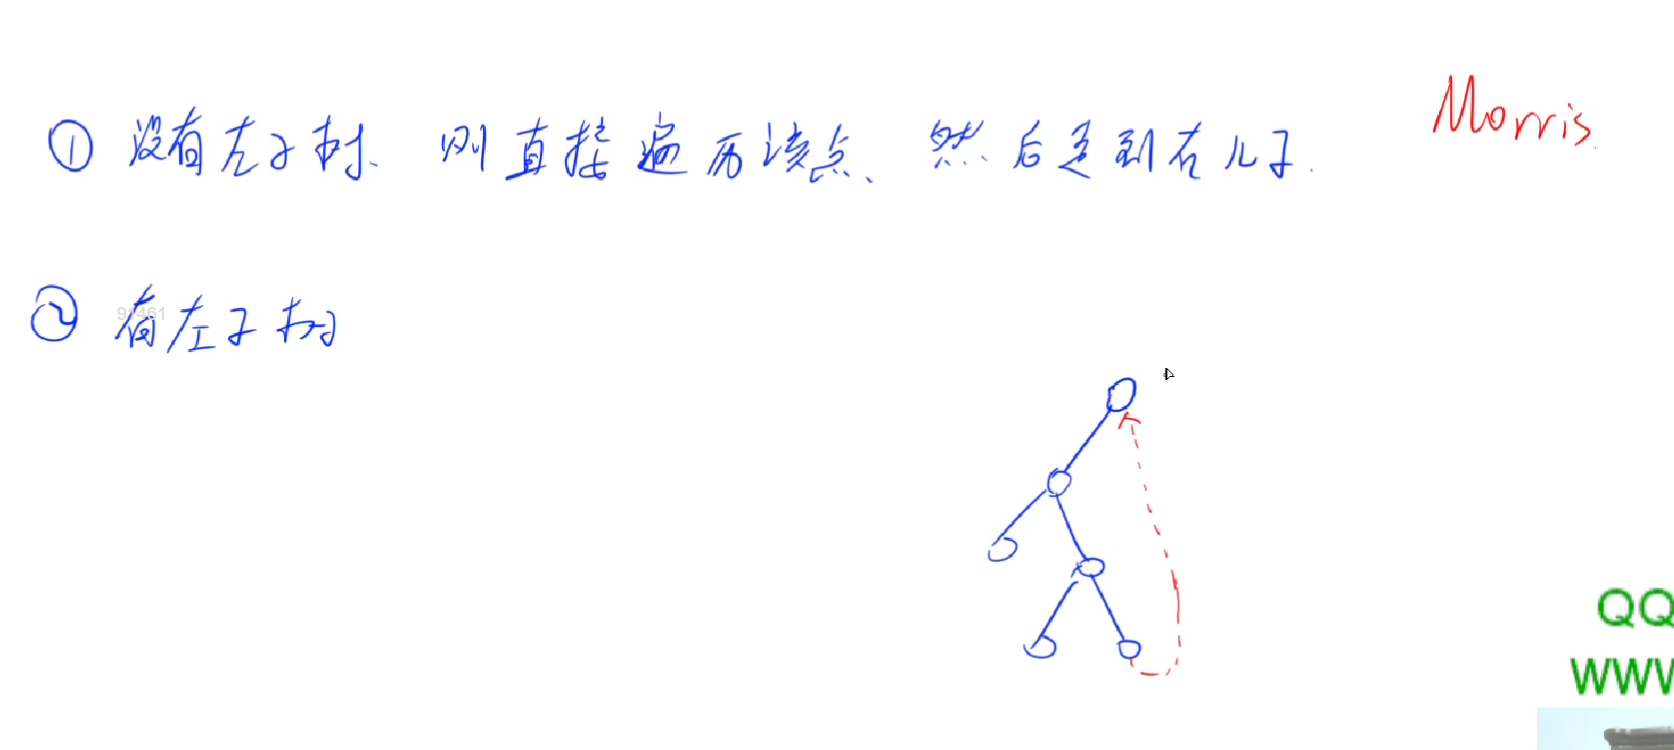 Morris
① 没有左子树、则直接遍历该点、然后走到右儿子.
② 有左子树
91461
QQ
WWW